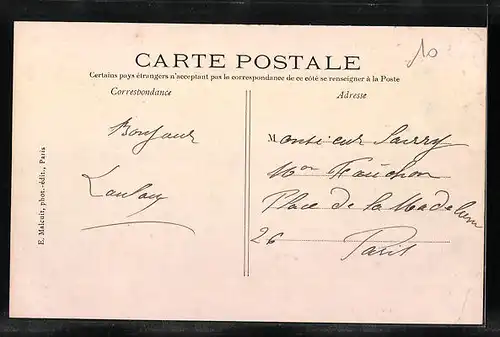 10
CARTE POSTALE
Certains pays étrangers n'acceptant pas le correspondance de ce côté se renseigner à la Poste
Correspondance
Adresse
Bonjour
Monsieur
Mon Fauchon
Place de la Madeleine
26
Paris
E. Malcuit, phot.-édit., Paris